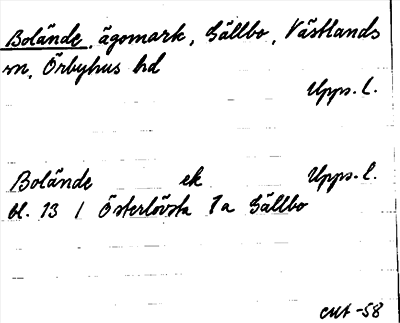 Bolände, ägomark, Gällbo, Västlands
sn, Örbyhus hd
Upps. l.
Bolände ek Upps. l.
bl. 13 / Österlövsta 7a Gällbo
CMt -58